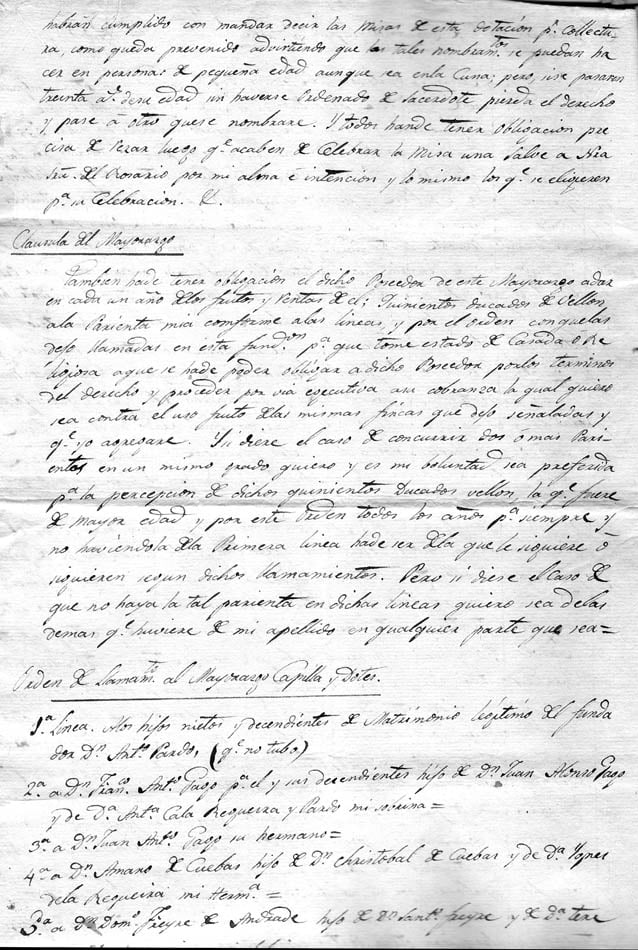 habian cumplido con mandar decir las Misas de esta dotación pr. Collectu-
ra, como queda prevenido advirtiendo que los tales nombramtos. se puedan ha
cer en personas de pequeña edad aunque sea en la Cuna; pero, si se pasaren
treinta as. de su edad sin haverse Ordenado de Sacerdote pierda el derecho
y pase á otro que se nombrare. Y todos hande tener obligacion pre
cisa de rezar luego qe. acaben de Celebrar la Misa una Salve a Nra
Sra. del Rosario por mi alma é intencion y lo mismo los qe. se eligieren
pa. su Celebracion. &.
Clausula del Mayorazgo
Tambien hade tener obligación el dicho Poseedor de este Mayorazgo a dar
en cada un año de los frutos y rentas de el; Quinientos ducados de Vellon
a la Parienta mia comforme a las lineas, y por el orden con que las
dejo llamadas en esta fundon. pa. que tome estado de Casada o Re
ligiosa a que se hade poder obligar a dicho Poseedor por los terminos
del derecho y proceder por via egecutiva a su cobranza la qual quiero
sea contra el uso fruto de las mismas fincas que dejo señaladas y
qe. yo agregare. Y si diere el caso de concurrir dos ó mas Pari-
entas en un mismo grado quiero y es mi voluntad sea preferida
pa. la percepcion de dichos quinientos Ducados vellon, la qe. fuere
de mayor edad y por este orden todos los años pa. siempre y
no haviendola de la Primera linea hade ser de la que le siguiere ó
siguieren segun dichos llamamientos. Pero si diese el Caso de
que no haya la tal parienta en dichas lineas quiero sea de las
demas qe. huviere de mi apellido en qualquier parte que sea=
Orden de Llamamto. al Mayorazgo Capilla y Dotes.
1ª. Linea. A los hijos nietos y decendientes de Matrimonio legitimo del funda
dor Dn. Anto. Pardo, (qe. no tubo)
2ª. a Dn. Franco. Anto. Gago pa. el y sus decendientes hijo de Dn. Juan Alonso Gago
y de Da. Anta. Cala Regueira y Pardo mi sobrina=
3ª. a Dn. Juan Anto. Gago su hermano=
4ª. a Dn. Amaro de Cuebas hijo de Dn. Christobal de Cuebas y de Da. Ygnes
de la Regueira mi Herma. =
5ª. a Dn. Domo. Freyre de Andrade hijo de Dn. Santo. Freyre y de Da. Tere